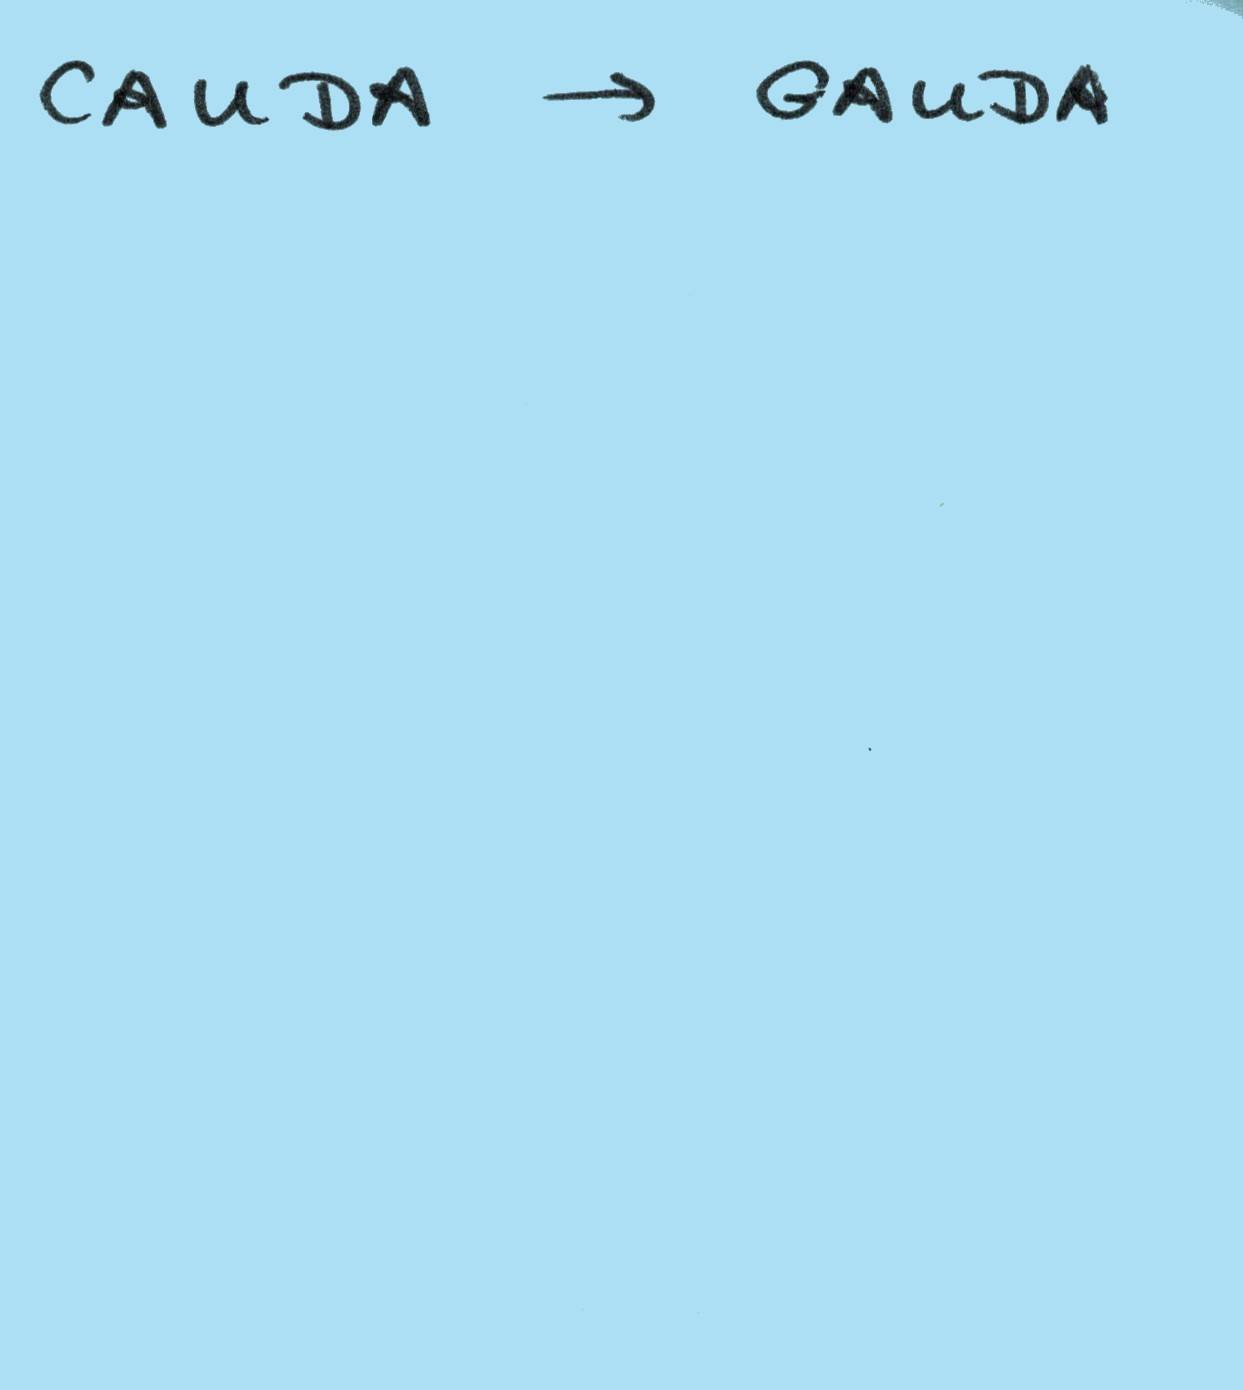 CAUDA → GAUDA